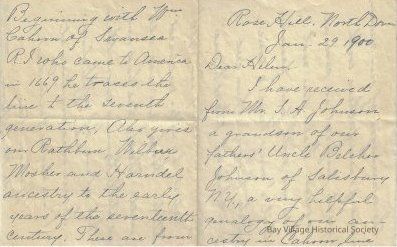 Rose Hill, North Dover
Jan. 29 1900.
Dear Helen,
I have received
from Mr. S. H. Johnson
a grandson of our
fathers' Uncle Belcher
Johnson of Salesbury
N.Y., a very helpful
genealogy of our an-
cestry in Cahoon line
Beginning with Wm
Cahoon of Swansea
R.I who came to America
in 1669 he traces the
line to the seventh
generation, Also gives
our Rathbun Wilbur
Mosher and Harndel
ancestry to the early
years of the seventeenth
century. These are from
Bay Village Historical Society